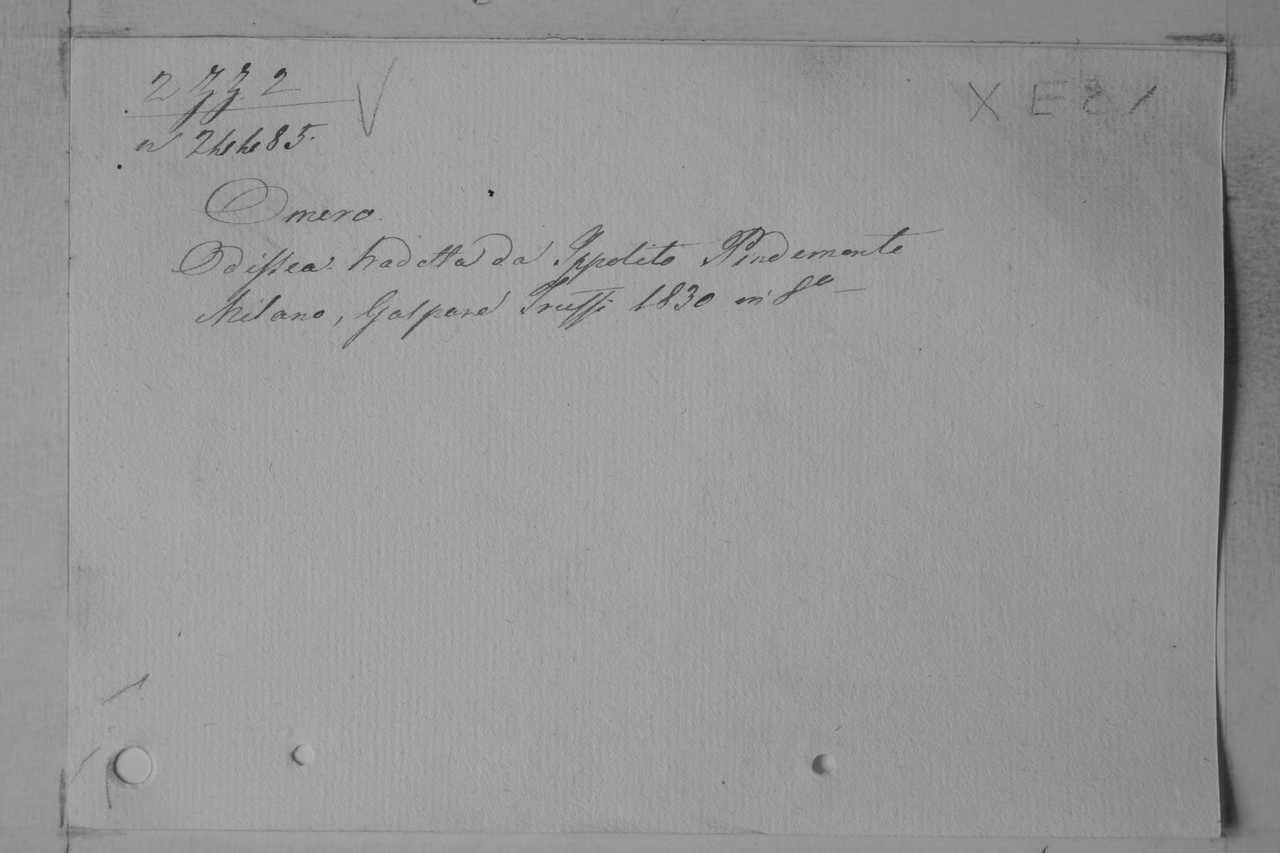 2 Z Z. 2
V
X E 8 1
n 24485.
Omero.
Odissea. tradotta da Ippolito Pindemonte
Milano, Gaspare Truffi 1830 in 8º